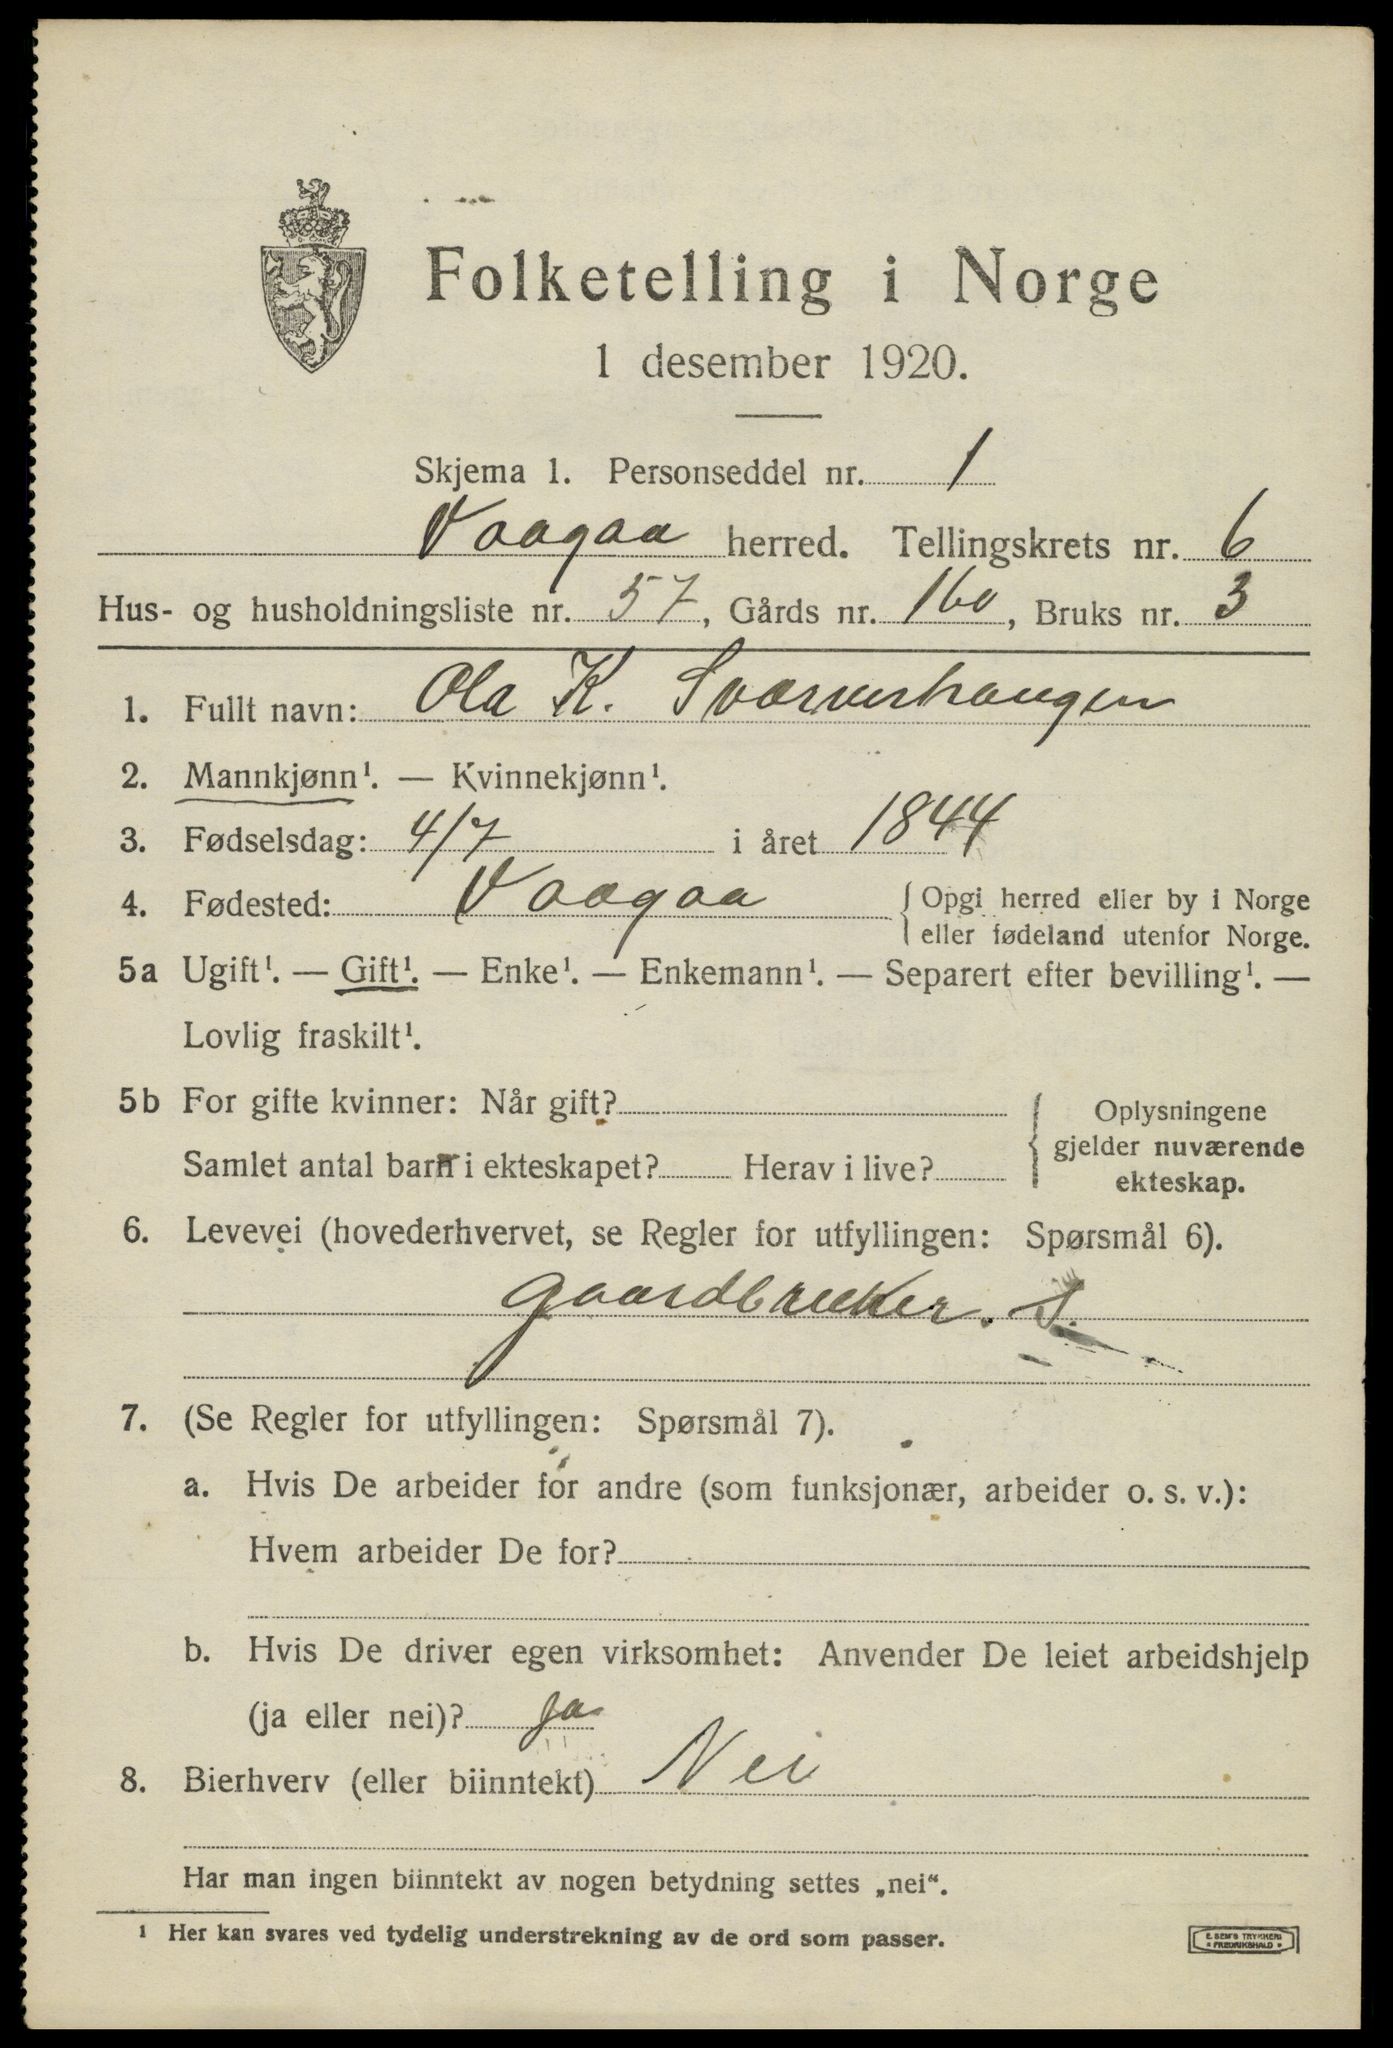 Folketelling i Norge
1 desember 1920.
Skjema 1. Personseddel nr. 1
Vaagaa herred. Tellingskrets nr. 6
Hus- og husholdningsliste nr. 57, Gårds nr. 160, Bruks nr. 3
1. Fullt navn: Ola K. Sværverhaugen
2. Mannkjønn¹. — Kvinnekjønn¹.
3. Fødselsdag: 4/7 i året 1844
4. Fødested: Vaagaa { Opgi herred eller by i Norge
eller fødeland utenfor Norge.
5a Ugift¹. — Gift¹. — Enke¹. — Enkemann¹. — Separert efter bevilling¹. —
Lovlig fraskilt¹.
5b For gifte kvinner: Når gift?
Samlet antal barn i ekteskapet? Herav i live?
Oplysningene
gjelder nuværende
ekteskap.
6. Levevei (hovederhvervet, se Regler for utfyllingen: Spørsmål 6).
gaardbruker. S.
7. (Se Regler for utfyllingen: Spørsmål 7).
a. Hvis De arbeider for andre (som funksjonær, arbeider o. s. v.):
Hvem arbeider De for?
b. Hvis De driver egen virksomhet: Anvender De leiet arbeidshjelp
(ja eller nei)? ja
8. Bierhverv (eller biinntekt) Nei
Har man ingen biinntekt av nogen betydning settes „nei“.
¹ Her kan svares ved tydelig understrekning av de ord som passer.
E. SEM'S TRYKKERI
* FREDRIKSHALD *